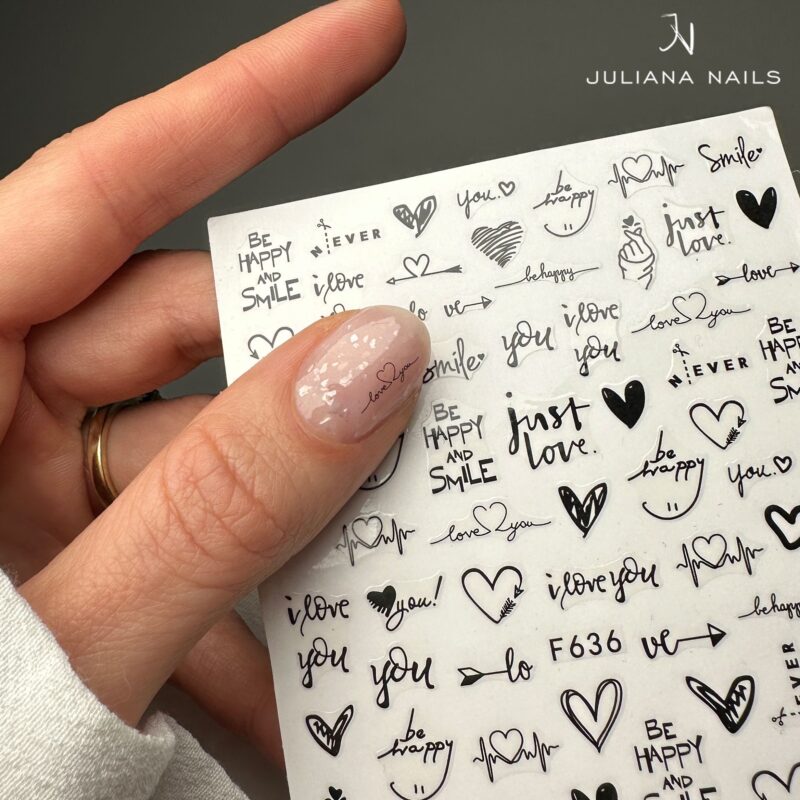 JULIANA NAILS
Smile
you.
be
happy
BE
HAPPY
AND
SMILE
NEVER
just
love.
i love
be happy
love
lo
ve
you
i love
you
love you
smile
love you
BE
HAPPY
AND
SMILE
just
love.
NEVER
BE
HAPPY
AND
be
happy
you.
love you
i love
you!
i love you
be happy
you
you
lo
F636
ve
be
happy
BE
HAPPY
AND
SMILE